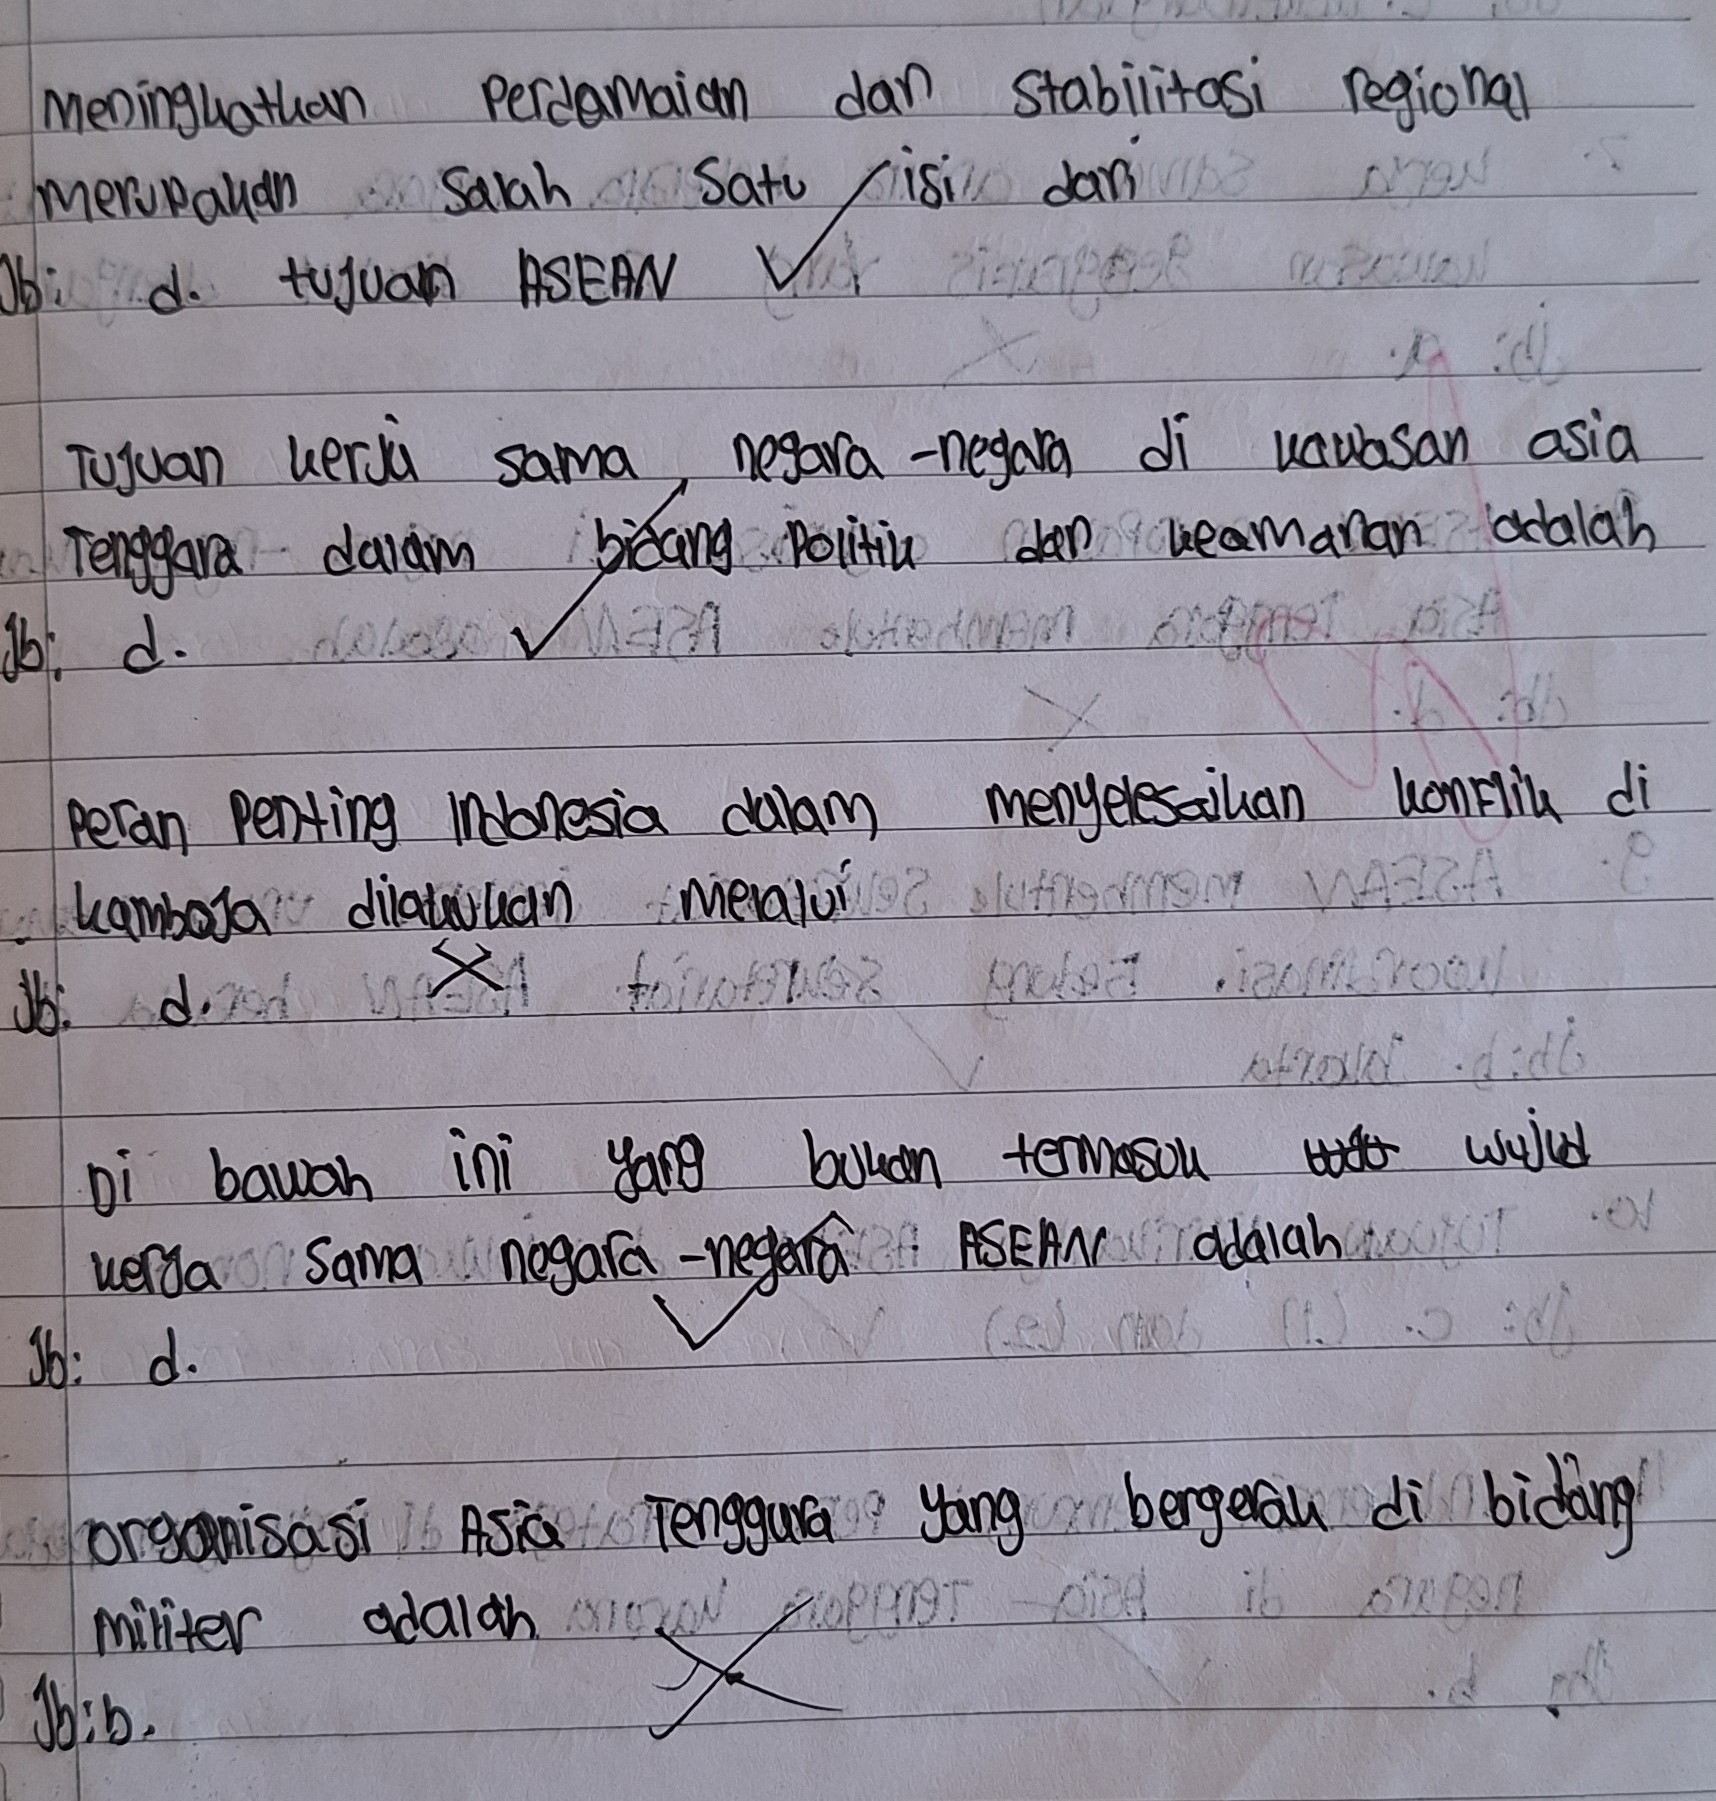 Meningkatkan Perdamaian dan Stabilitasi regional
merupakan salah satu isi dari
Jb: d. tujuan ASEAN
Tujuan kerja sama negara-negara di kawasan asia
Tenggara dalam bidang Politik dan keamanan adalah
Jb: d.
Peran Penting Indonesia dalam menyelesaikan konflik di
kamboja dilakukan melalui
Jb: d.
Di bawah ini yang bukan termasuk wujud
kerja sama negara-negara ASEAN adalah
Jb: d.
organisasi Asia Tenggara yang bergerak di bidang
militer adalah
Jb: b.